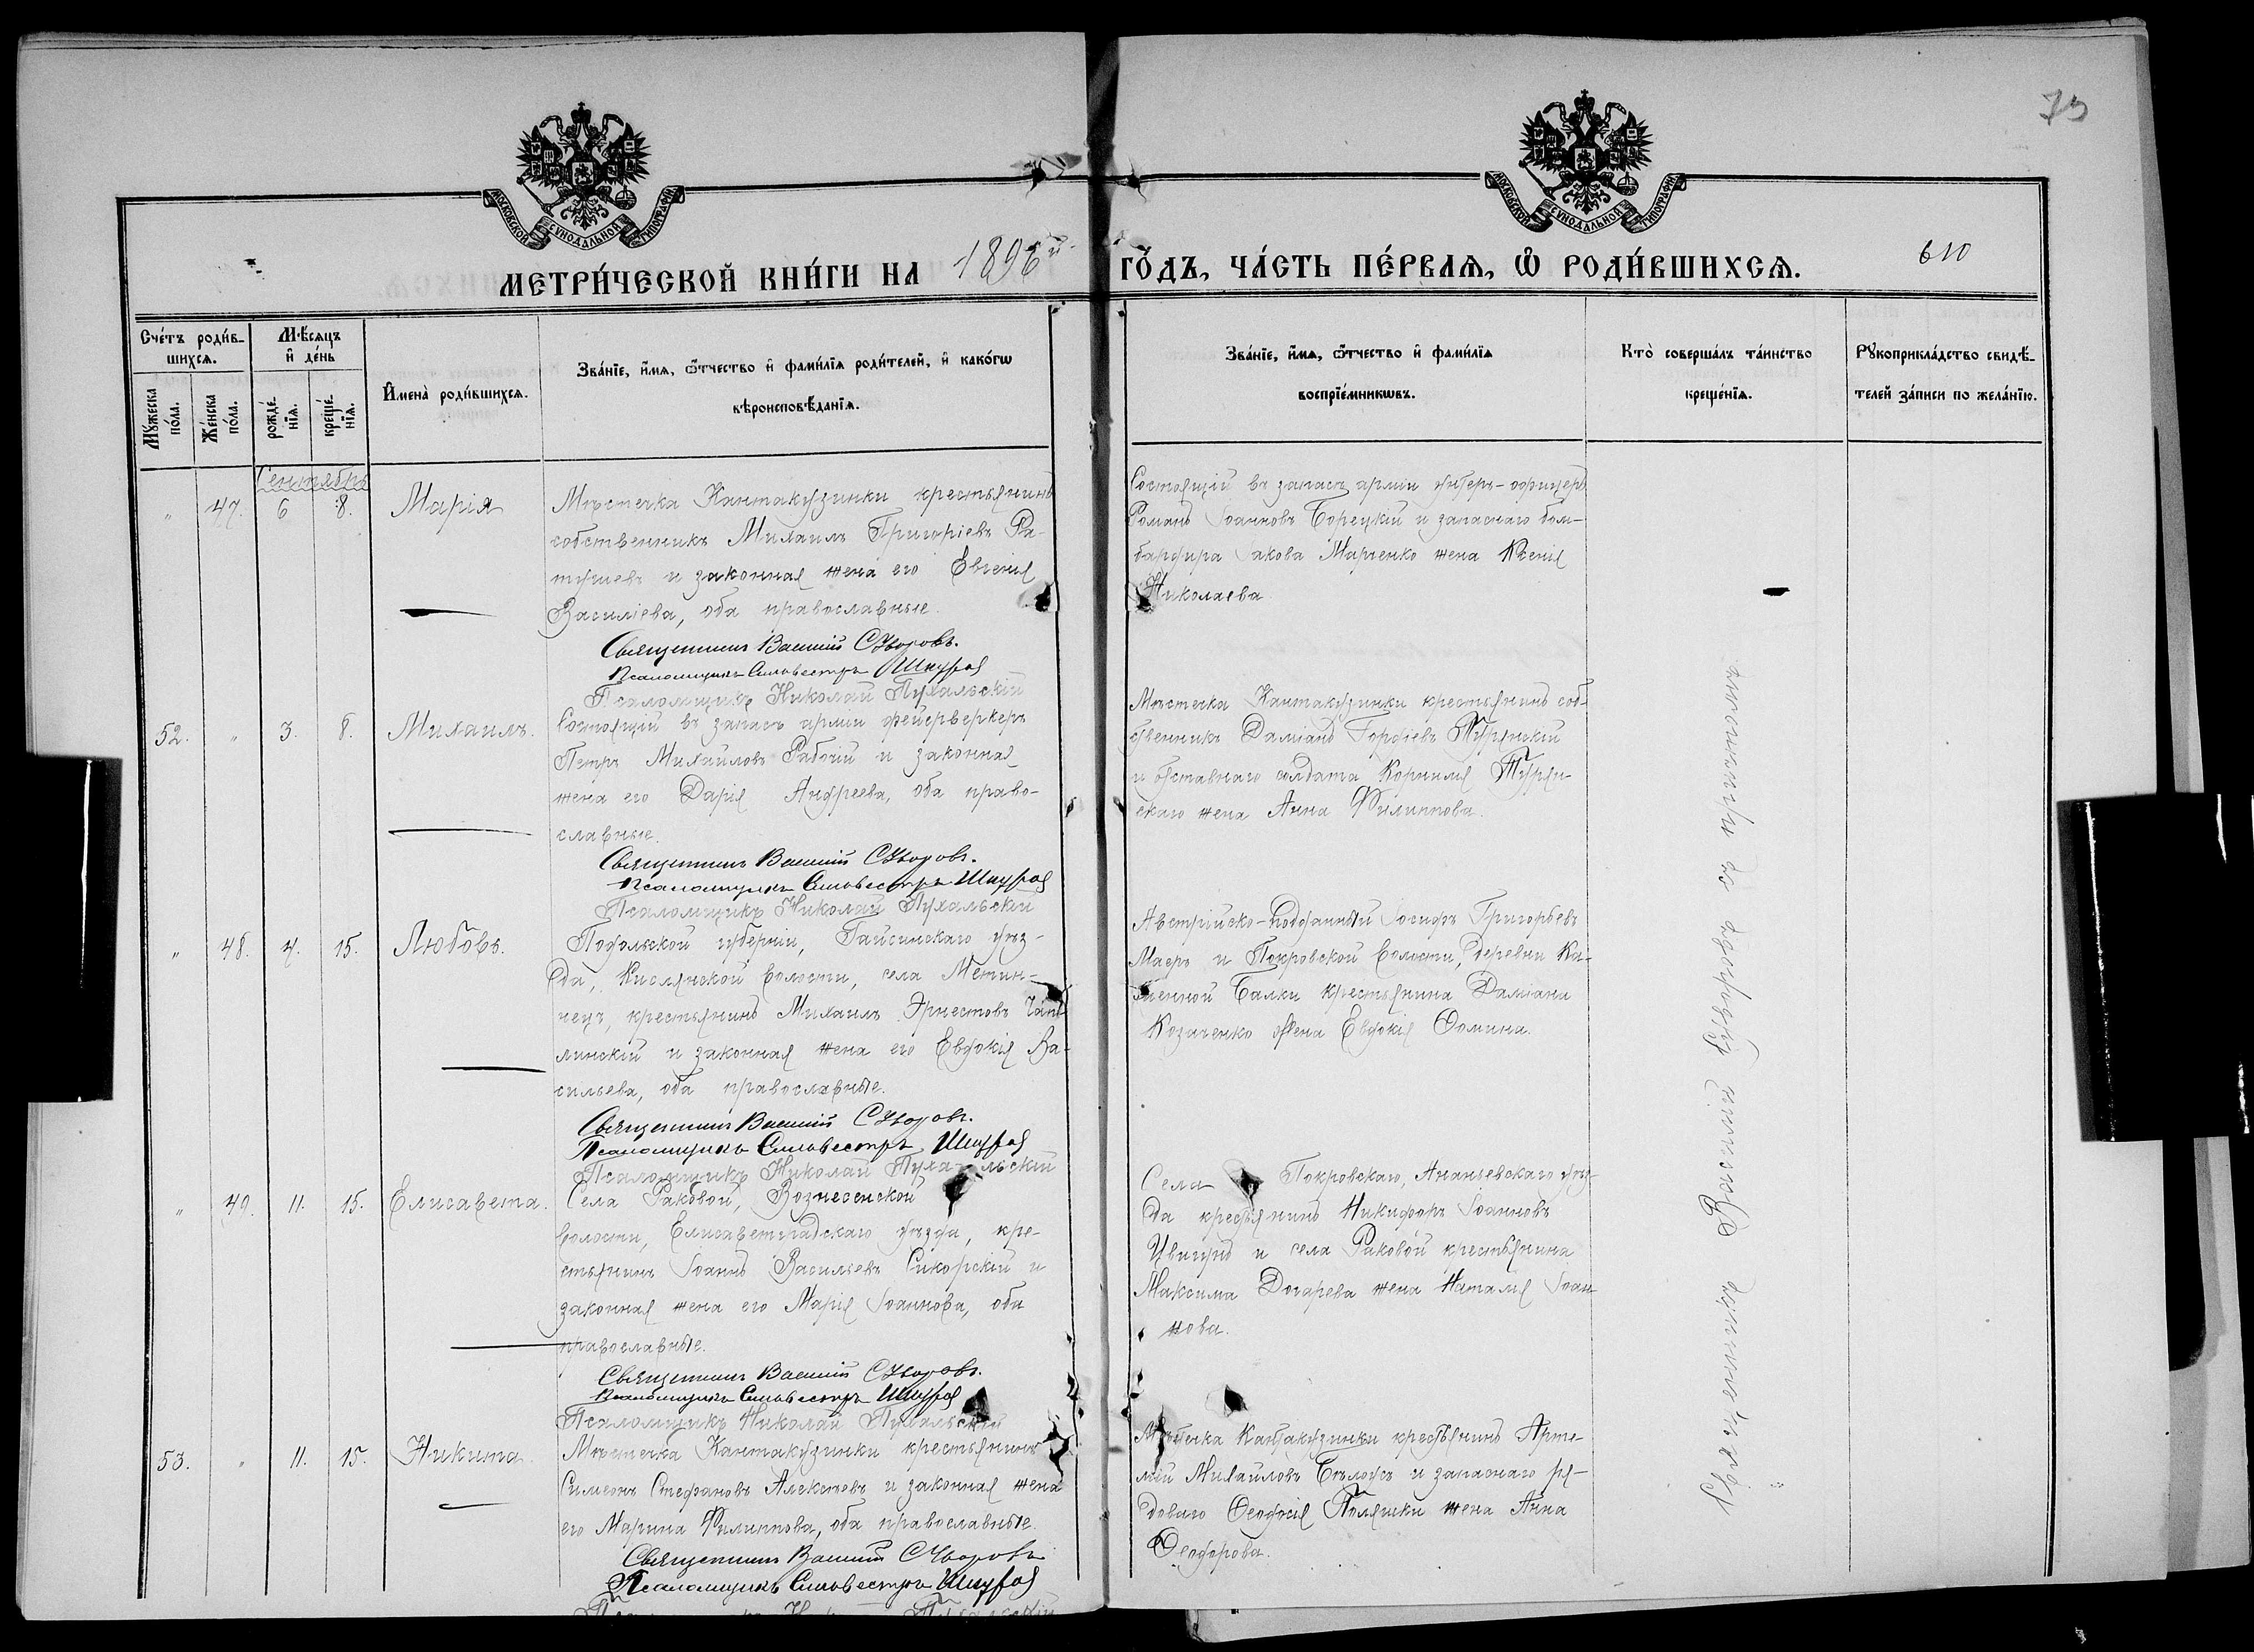 79
МОСКОВСКОЙ СѴНОДАЛЬНОЙ ТИПОГРАФІИ
МОСКОВСКОЙ СѴНОДАЛЬНОЙ ТИПОГРАФІИ
МЕТРИ́ЧЕСКОЙ КНИ́ГИ НА 1896й ГО́ДЪ, ЧА́СТЬ ПЕ́РВАЯ, Ѡ РОДИ́ВШИХСЯ.
610
Сче́тъ роди́в-
шихся.
Мꙋ́жеска
по́ла.
Же́нска
по́ла.
Мѣ́сяцъ
и҆ де́нь
рожде́-
нїя.
креще́-
нїя.
И҆мена̀ роди́вшихся.
Зва́нїе, и҆́мя, ѻ҆́тчество и҆ фами́лїя роди́телей, и҆ како́гѡ
вѣроисповѣ́данїя.
Зва́нїе, и҆́мя, ѻ҆́тчество и҆ фами́лїя
воспрїе́мникѡвъ.
Кто̀ соверша́лъ та́инство
креще́нїя.
Рꙋкоприкла́дство свидѣ́-
телей за́писи по жела́нїю.
Сентябрь
" 47. 6 8. Марія
Мѣстечка Кантакузинки крестьянинъ
собственникъ Михаилъ Григоріевъ Ра-
тушевъ и законная жена его Евгенія
Василіева, оба православные.
Священникъ Василій Суворовъ.
Псаломщикъ Сильвестръ
Псаломщикъ Николай Пухальскій
Состоящій въ запасѣ арміи унтеръ-офицеръ
Романъ Іоанновъ Борецкій и запаснаго бом-
бардира Іакова Марченко жена Ксенія
Николаева
52. " 3. 8. Михаилъ.
Состоящій въ запасѣ арміи фейерверкеръ
Петръ Михайловъ Рабочій и законная
жена его Дарія Андреева, оба право-
славные.
Священникъ Василій Суворовъ.
Псаломщикъ Сильвестръ
Псаломщикъ Николай Пухальскій
Мѣстечка Кантакузинки крестьянинъ соб-
ственникъ Даміанъ Гордіевъ Турянскій
и отставнаго солдата Корнилія Турян-
скаго жена Анна Филиппова.
" 48. 4. 15. Любовь.
Подольской губерніи, Гайсинскаго уѣз-
да, Кислянской волости, села Метан-
нецъ, крестьянинъ Михаилъ Эрнестовъ
линскій и законная жена его Евдокія Ва-
сильева, оба православные.
Священникъ Василій Суворовъ.
Псаломщикъ Сильвестръ
Псаломщикъ Николай Пухальскій
Австрійско-подданный Іосифъ Григорьевъ
Маеръ и Покровской волости, деревни Ка-
менной Балки крестьянина Даміана
Козаченко жена Евдокія Ѳомина.
" 49. 11. 15. Елисавета.
Села Раковой, Вознесенской
волости, Елисаветградскаго уѣзда, кре-
стьянинъ Іоаннъ Васильевъ Сикорскій и
законная жена его Марія Іоаннова, оба
православные.
Священникъ Василій Суворовъ.
Псаломщикъ Сильвестръ
Псаломщикъ Николай Пухальскій
Села Покровскаго, Ананьевскаго уѣз-
да крестьянинъ Никифоръ Іоанновъ
Цвигунъ и села Раковой крестьянина
Максима Догарева жена Наталія Іоан-
нова.
53. " 11. 15. Никита.
Мѣстечка Кантакузинки крестьянинъ
Симеонъ Стефановъ Алексѣевъ и законная жена
его Марина Филиппова, оба православные.
Священникъ Василій Суворовъ
Псаломщикъ Сильвестръ
Мѣстечка Кантакузинки крестьянинъ Арте-
мій Михайловъ Бѣлоусъ и запаснаго ря-
доваго Ѳеодосія Поляшки жена Анна
Ѳеодорова.
Священникъ Василій Суворовъ съ причтомъ